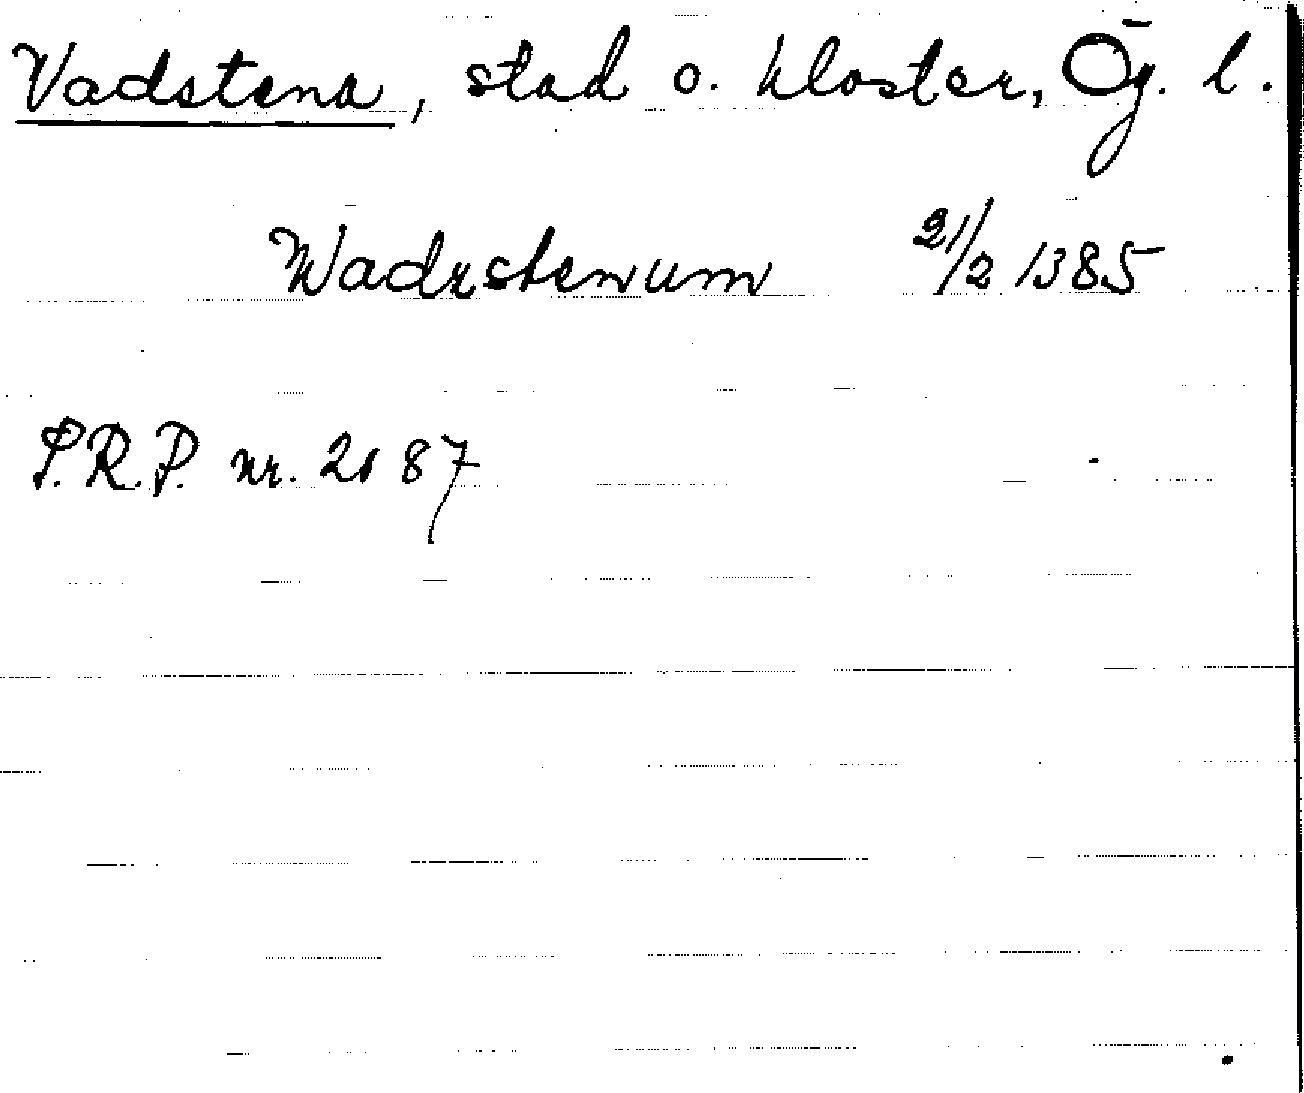 Vadstena, stad o. kloster, Ög. l.
Wadzstenum 21/2 1385
P.R.P. nr. 2187